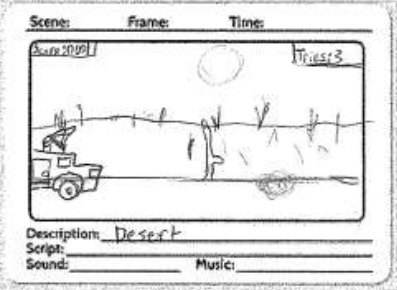 Scene: Frame: Time:
Tries:3
Description: Desert
Script:
Sound: Music: